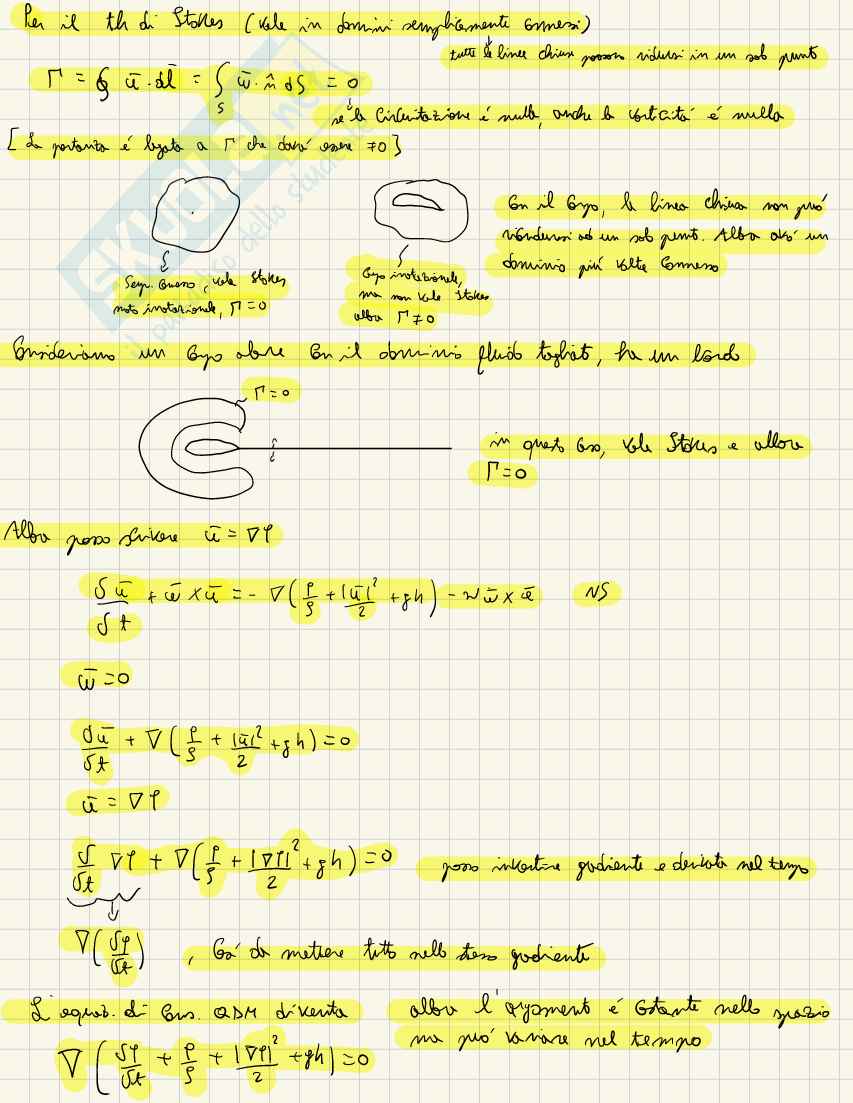 Per il th di Stokes (vale in domini semplicemente connessi)
tutte le linee chiuse possono ridursi in un sol punto
Γ = ∮ ū·dl̄ = ∫_S ω̄·n̂ dS = 0
se la circuitazione è nulla, anche la vorticità è nulla
[La portanza è legata a Γ che dovrà essere ≠0]
Con il corpo, la linea chiusa non può
ridursi ad un sol punto. Allora avrò un
dominio più volte connesso
Sempl. connesso, vale Stokes
moto irrotazionale, Γ=0
Corpo irrotazionale,
ma non vale Stokes
allora Γ≠0
Consideriamo un corpo alare con il dominio fluido tagliato, ha un bordo
Γ=0
in questo caso, vale Stokes e allora
Γ=0
Allora posso scrivere ū = ∇φ
δū/δt + ω̄ × ū = - ∇(p/ρ + |ū|²/2 + gh) - ν ω̄ × ū NS
ω̄ = 0
δū/δt + ∇(p/ρ + |ū|²/2 + gh) = 0
ū = ∇φ
δ/δt ∇φ + ∇(p/ρ + |∇φ|²/2 + gh) = 0 posso invertire gradiente e derivata nel tempo
∇(δφ/δt) , così da mettere tutto nello stesso gradiente
L'equaz. di cons. QDM diventa
allora l'argomento è costante nello spazio
ma può variare nel tempo
∇(δφ/δt + p/ρ + |∇φ|²/2 + gh) = 0
skuola.net
il paradiso dello studente